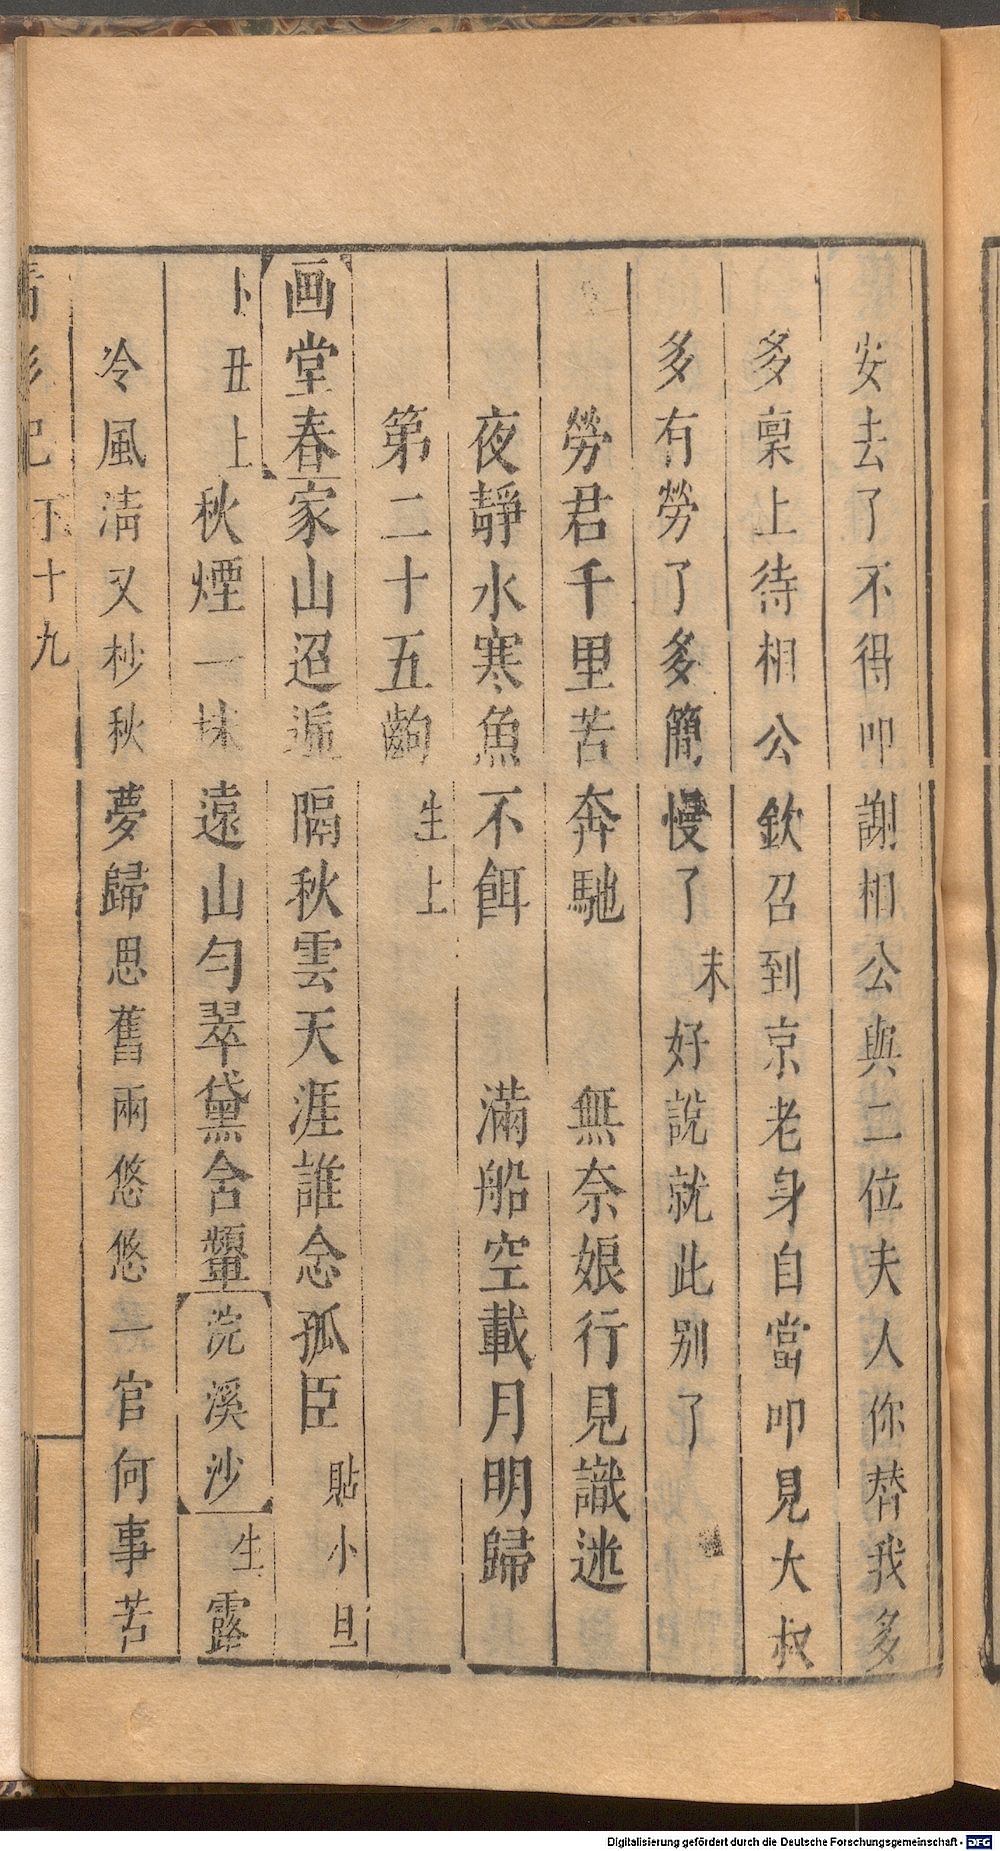 安去了不得叩謝相公與二位夫人你替我多
多稟上待相公欽召到京老身自當叩見大叔
多有勞了多簡慢了末好說就此別了
勞君千里苦奔馳 無奈娘行見識迷
夜靜水寒魚不餌 滿船空載月明歸
第二十五齣 生上
画堂春家山迢遞隔秋雲天涯誰念孤臣貼小旦
卜丑上秋煙一抹遠山勻翠黛含顰浣溪沙生露
冷風淸又杪秋夢歸思舊兩悠悠一官何事苦
記下十九
Digitalisierung gefördert durch die Deutsche Forschungsgemeinschaft - DFG